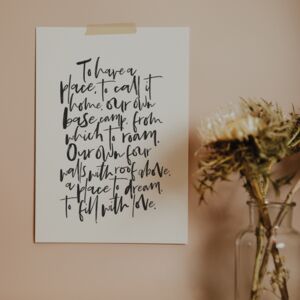 To have a
place, to call it
home, our own
base camp, from
which to roam.
Our own four
walls with roof above,
a place to dream,
to fill with love.